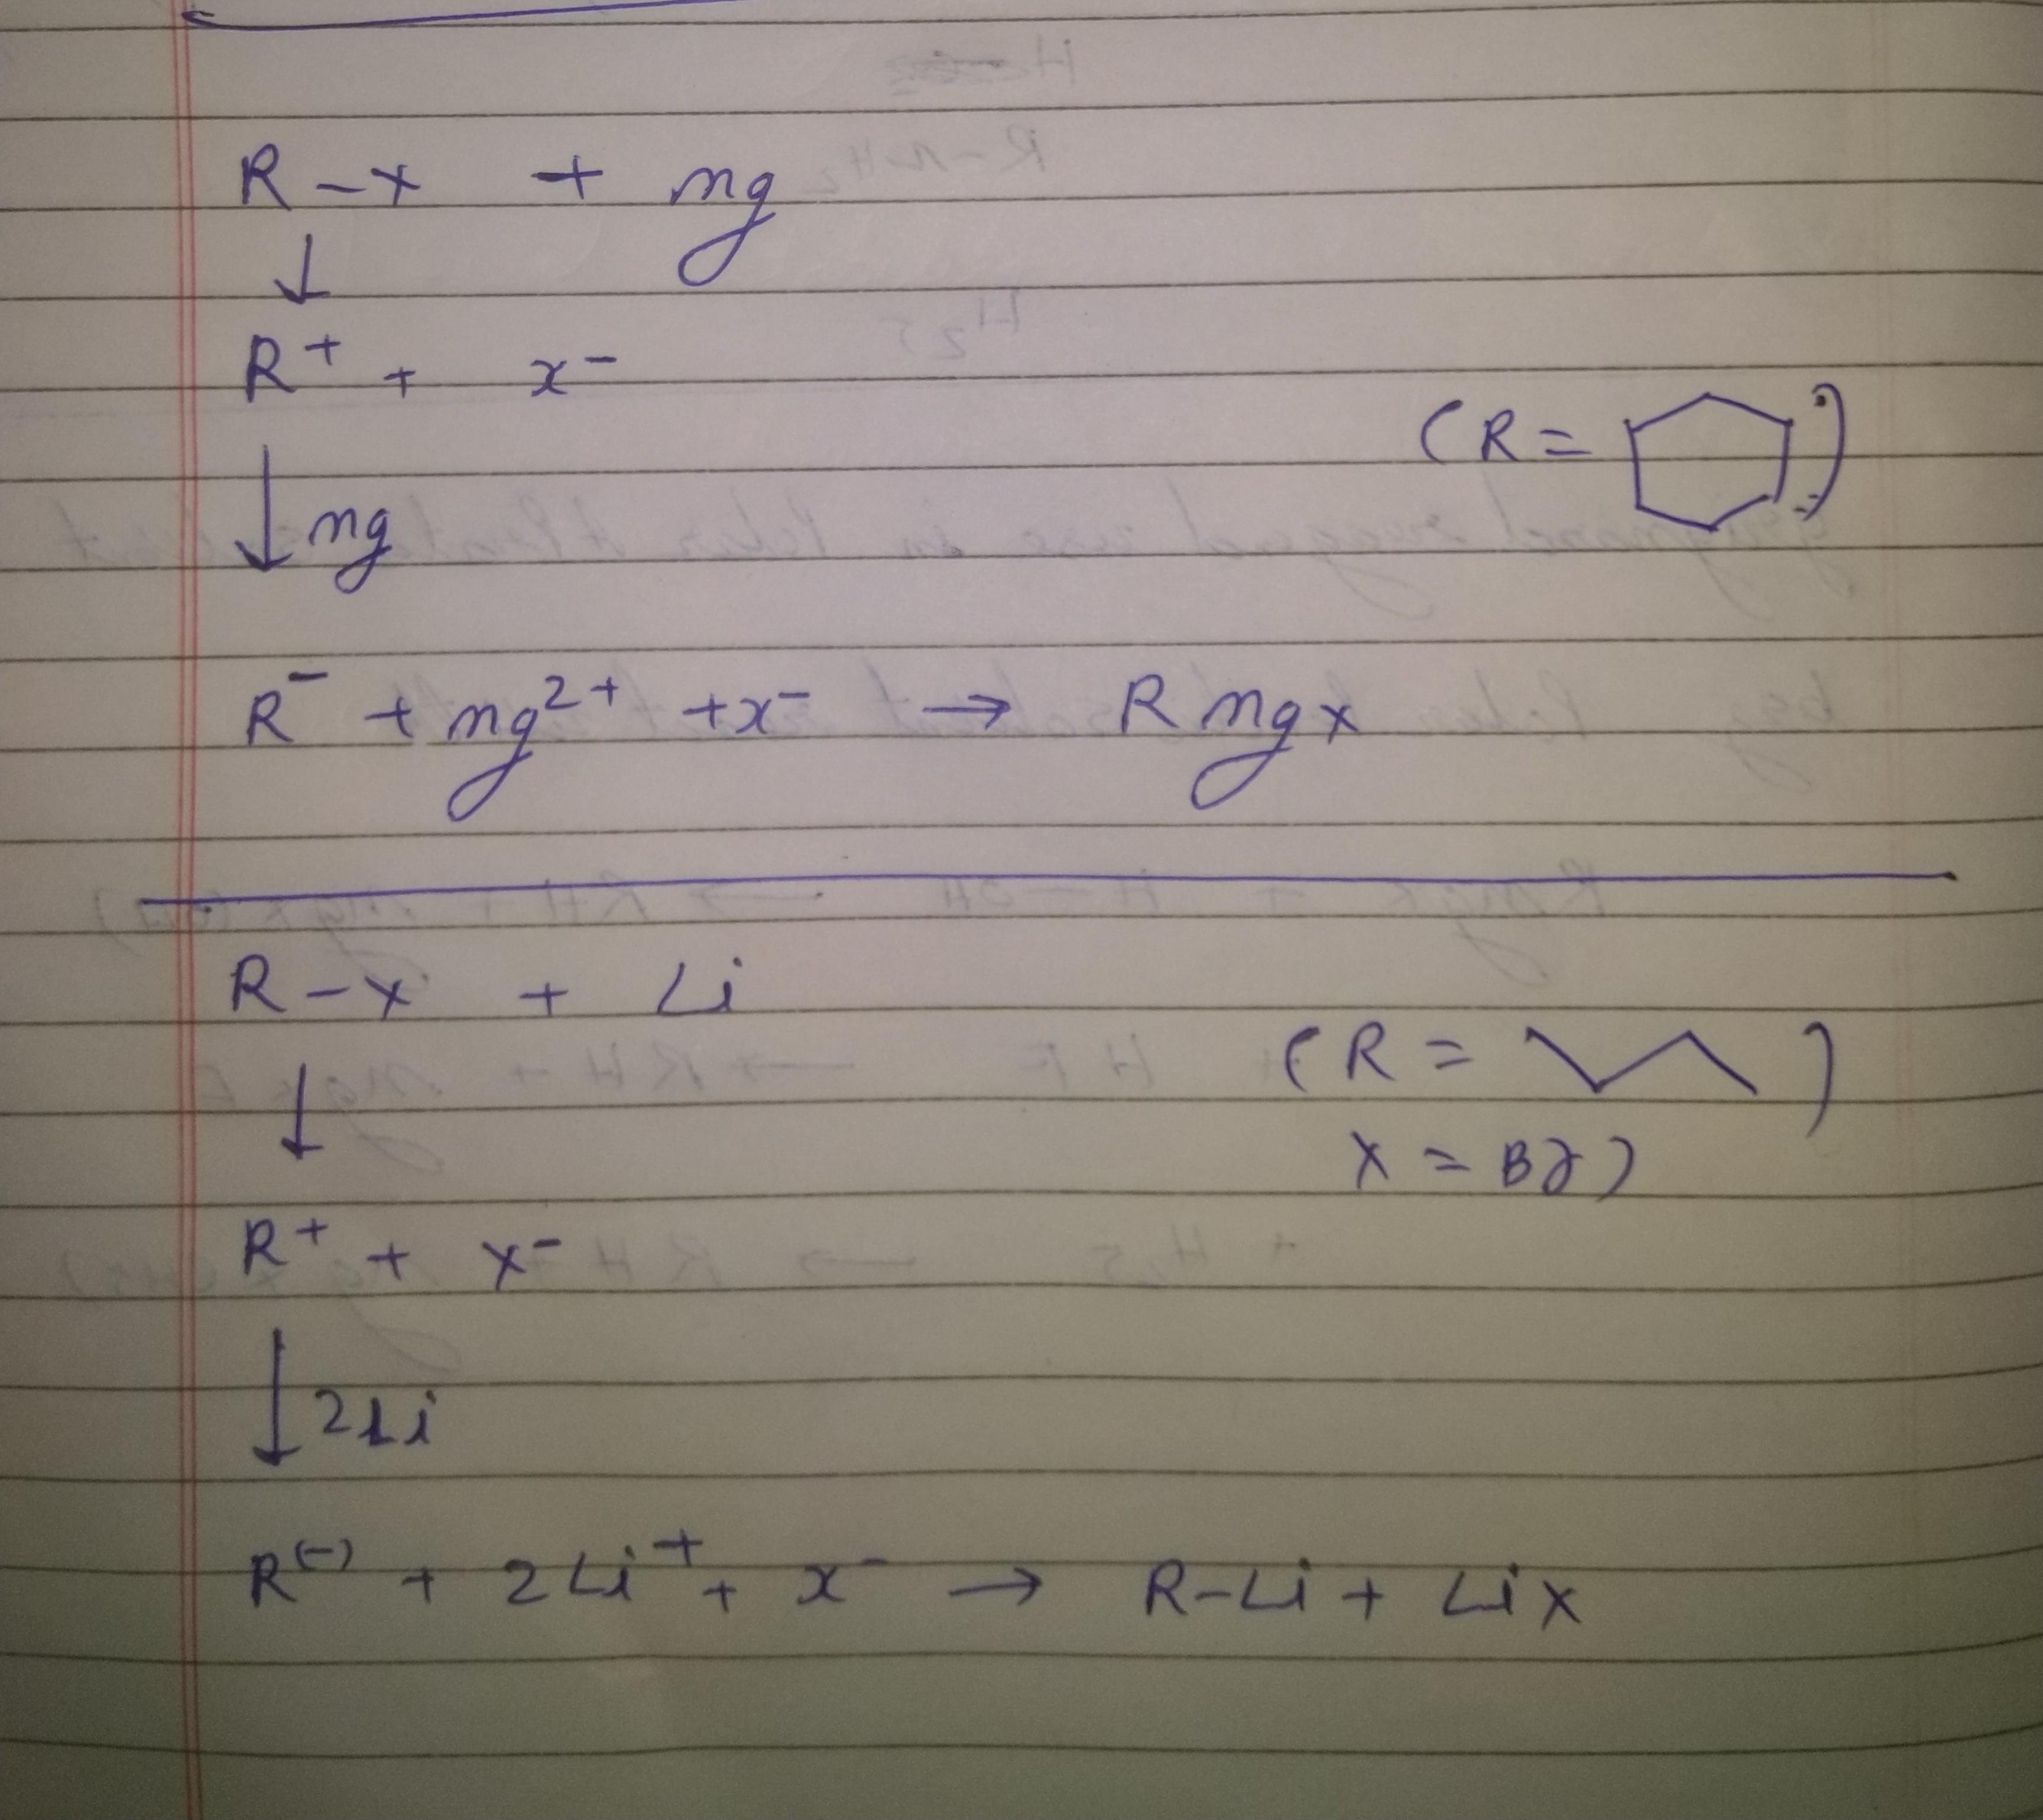 R - x + mg
↓
R⁺ + x⁻
(R = )
↓ mg
R⁻ + mg²⁺ + x⁻ → R mg x
R - x + Li
(R = )
↓
x = Br)
R⁺ + x⁻
↓ 2Li
R⁽⁻⁾ + 2Li⁺ + x⁻ → R-Li + Lix